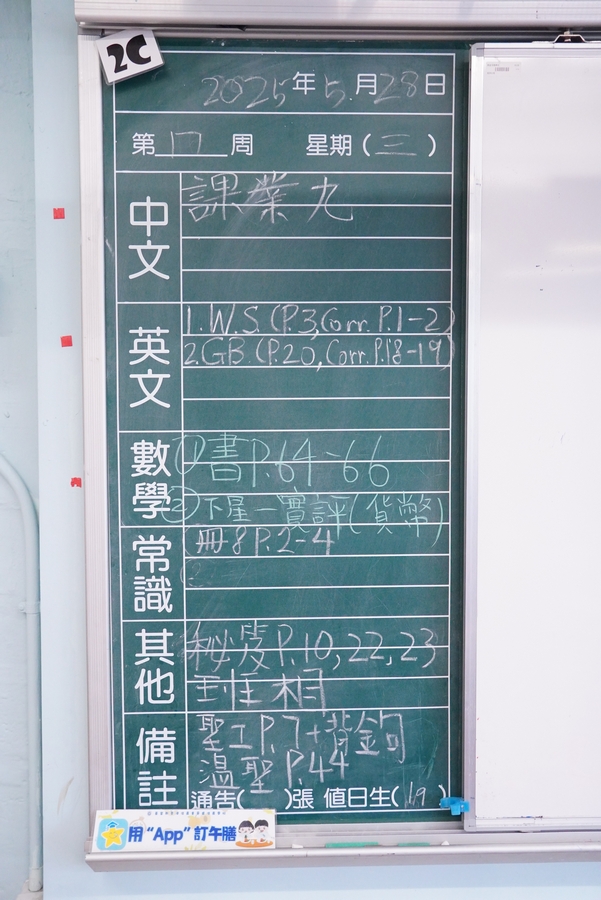 2C
2025年5月28日
第17周 星期(三)
中文
課業九
英文
1.W.S.(P.3,Corr.P.1-2)
2.GB.(P.20,Corr.P.18-19)
數學
①書P.64-66
②下星一實評(貨幣)
常識
冊8 P.2-4
其他
P.10,22,23
相
備註
聖工P.7+背金句
溫聖P.44
通告( )張 值日生(19)
用“App”訂午膳